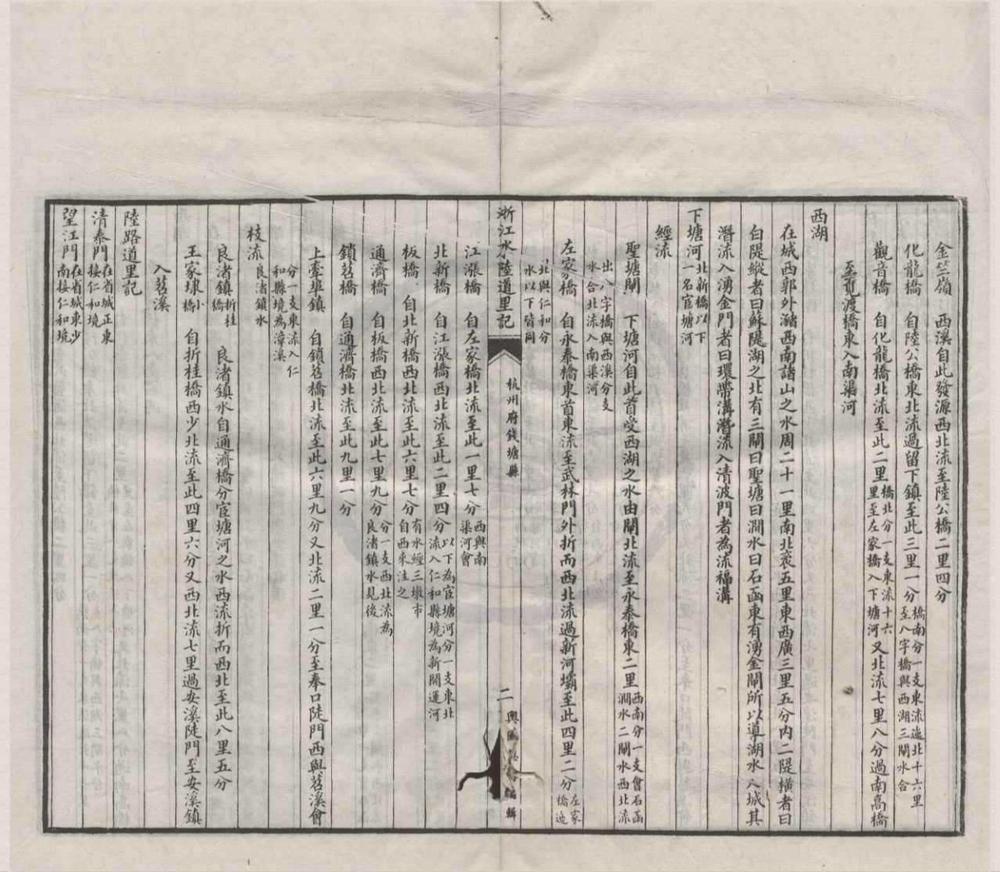 金竺嶺　西溪自此發源西北流至陸公橋二里四分
化龍橋　自陸公橋東北流過留下鎮至此三里一分橋南分一支東流迤北十六里至八字橋與西湖三閘水合
觀音橋　自化龍橋北流至此二里橋北分一支東流十六里至左家橋入下塘河又北流七里八分過南高橋
至駕渡橋東入南渠河
西湖
在城西郭外瀦西南諸山之水周二十一里南北袤五里東西廣三里五分內二隄橫者曰
白隄縱者曰蘇隄湖之北有三閘曰聖塘曰澗水曰石函東有湧金閘所以導湖水入城其
潛流入湧金門者曰環帶溝潛流入清波門者為流福溝
下塘河北新橋以下一名宦塘河
經流
聖塘閘　下塘河自此首受西湖之水由閘北流至永泰橋東二里西南分一支會石函澗水二閘水西北流
出八字橋與西溪分支水合北流入南渠河
左家橋　自永泰橋東首東流至武林門外折而西北流過新河壩至此四里二分左家橋迤
北與仁和分水以下皆同
浙江水陸道里記
杭州府錢塘縣
二
江漲橋　自左家橋北流至此一里七分西與南渠河會
北新橋　自江漲橋西北流至此二里四分以下為宦塘河分一支東北流入仁和縣境為新開運河
板橋　自北新橋西北流至此六里七分有水經三墩市自西來注之
通濟橋　自板橋西北流至此七里九分分一支西北流為良渚鎮水見後
鎖苕橋　自通濟橋北流至此九里一分
上牽埠鎮　自鎖苕橋北流至此六里九分又北流二里一分至奉口陡門西與苕溪會
分一支東流入仁和縣境為漳溪
枝流良渚鎮水
良渚鎮折桂橋　良渚鎮水自通濟橋分宦塘河之水西流折而西北至此八里五分
王家埭小橋　自折桂橋西少北流至此四里六分又西北流七里過安溪陡門至安溪鎮
入苕溪
陸路道里記
清泰門在省城正東接仁和境
望江門在省城東少南接仁和境